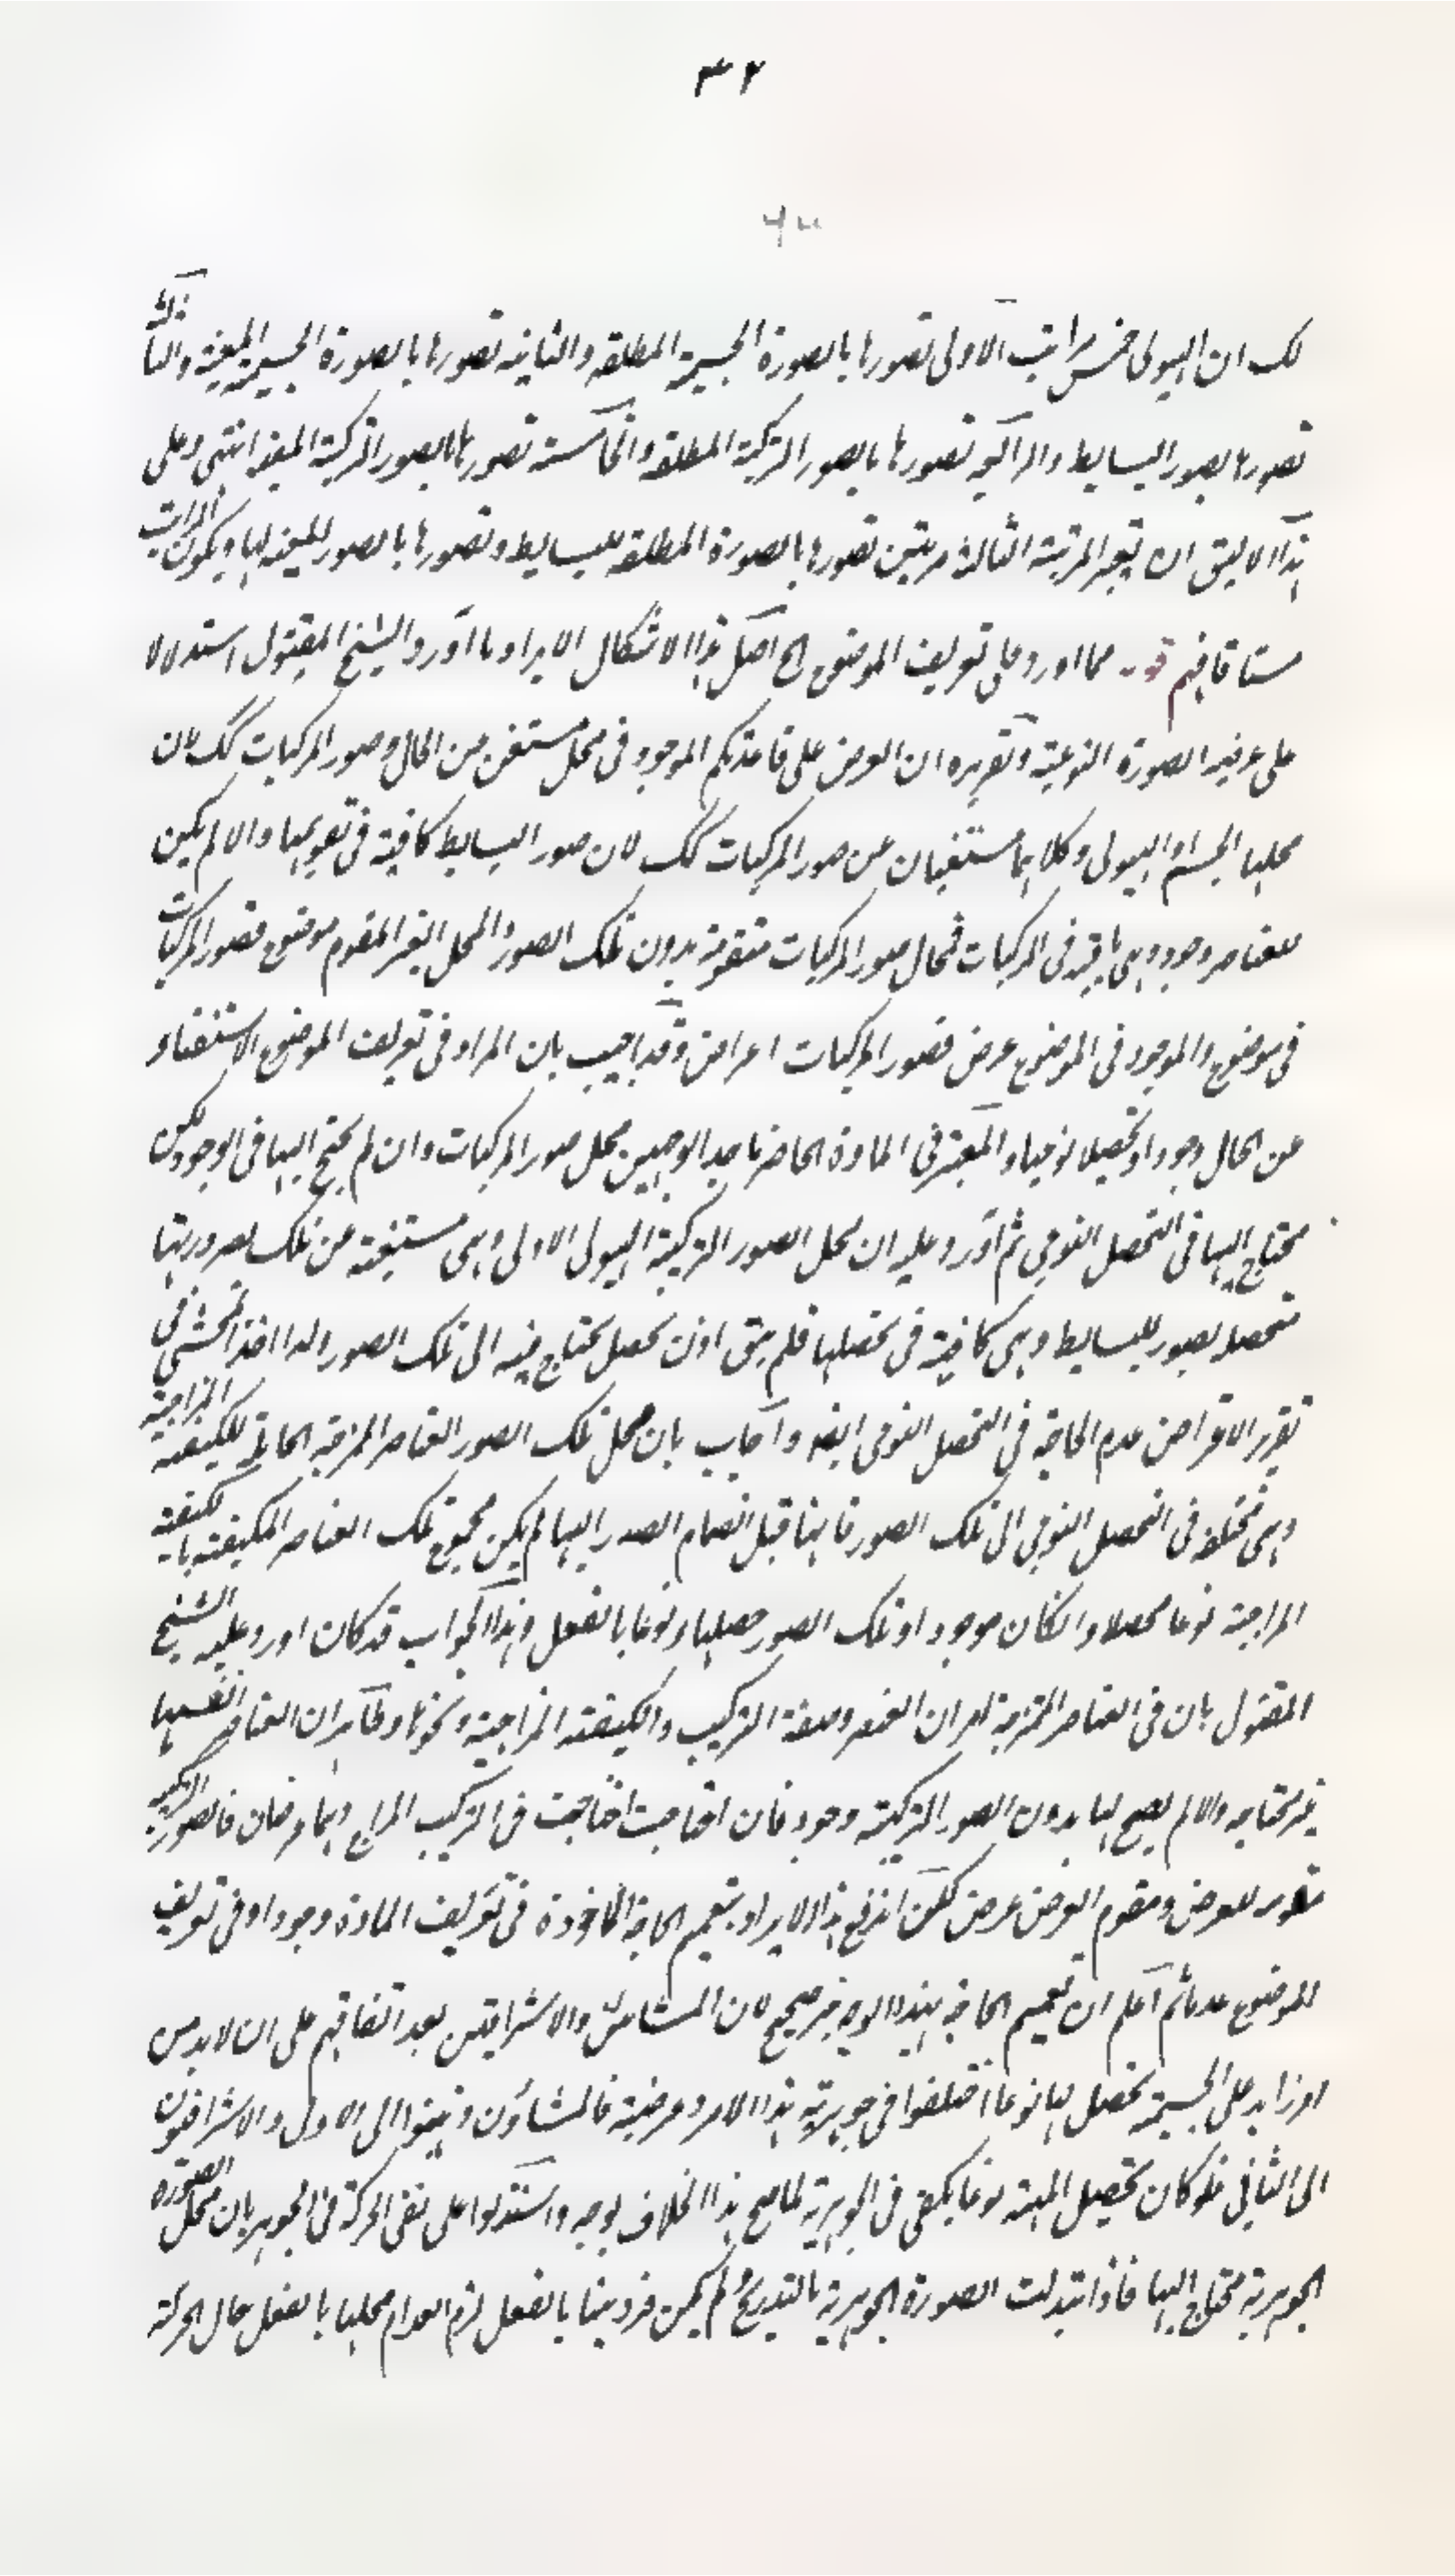 ٣٢
لك ان الهيولى خمس مراتب الاولى تصورها بالصورة الجسمية المطلقه والثانيه تصورها بالصورة الجسمية المعينة والثالثة
تصورها بصور البسايط والرابعه تصورها بالصور التركيبة المطلقه والخامسة تصورها بالصور التركيبة المعينه انتهى وعلى
هذا الاليق ان يعتبر المرتبة الثالثة مرتبتين تصورها بالصورة المطلقه للبسايط وتصورها بالصور المعينه لها ويكون المراتب
ستا فافهم قوله مما اورد على تعريف الموضوع الخ اصل هذا الاشكال الايراد ما اورد الشيخ المقتول استدلالا
على عرضية الصورة النوعية وتقريره ان العرض على قاعدتكم الموجود فى محل مستغن عن الحال وصور المركبات كك لان
محلها الجسم او الهيولى وكلاهما مستغنيان عن صور المركبات كك لان صور البسايط كافية فى تقويمها والا لم يكن
للعناصر وجود وهى باقية فى المركبات فمحال صور المركبات متقومة بدون تلك الصور والمحل الغير المقوم موضوع فصور المركبات
فى موضوع والموجود فى الموضوع عرض فصور المركبات اعراض وقد اجيب بان المراد فى تعريف الموضوع الاستغناء
عن الحال وجودا وتحصيلا نوعيا والمعتبر فى المادة الحاضر باحد الوجهين محل صور المركبات وان لم يحتج اليها فى الوجود لكن
محتاج اليها فى التحصل النوعى ثم اورد عليه ان محل الصور التركيبة الهيولى الاولى وهى مستغنية عن تلك لصرورتها
متحصلا بصور للبسايط وهى كافية فى تحصلها فلم يبق اذن تحصل يحتاج فيه الى تلك الصور ولذا اخذ المحشى فى
تقرير الاعتراض عدم الحاجة فى التحصل النوعى ايضا واجاب بان محل تلك الصور العناصر الممتزجة الحاملة للكيفية المزاجية
وهى محتاجة فى التحصل النوعى الى تلك الصور فانها قبل انضمام الصور اليها لم يكن مجموع تلك العناصر المكيفة بالكيفية
المزاجية نوعا محصلا وان كان موجودا وتلك الصور حصلتها نوعا بالفعل وهذا الجواب قد كان اورد عليه الشيخ
المقتول بان فى العناصر الممتزجة امران العنصر وصفة التركيب والكيفية المزاجية ونحوها وظاهر ان العناصر انفسها
غير محتاجه والا لم يصح لها بدون الصور التركيبة وجود فان احتاجت احتاجت فى التركيب المزاج وهما عرضان فالصور التركيبية
مقوم للعرض ومقوم العرض عرض لكن اندفع هذا الايراد بتعميم الحاجة الماخوذة فى تعريف المادة وجودا وفى تعريف
للموضوع عدما ثم اعلم ان تعميم الحاجة بهذا الوجه غير صحيح لان المشائين والاشراقيين بعد اتفاقهم على ان لابد من
امر زايد على الجسمية تحصل لها نوعا اختلفوا فى جوهرية هذا الامر وعرضية فالمشاؤن ذهبوا الى الاول والاشراقيون
الى الثانى فلو كان تحصيل المهية نوعا يكفى فى الجوهرية لما صح هذا الخلاف بوجه واستدلوا على نفى الحركة فى الجوهر بان محل الصورة
الجوهرية محتاج اليها فاذا تبدلت الصورة الجوهرية بالتدريج ولم يكن فرد منها بالفعل لزم انعدام محلها بالفعل حال الحركة